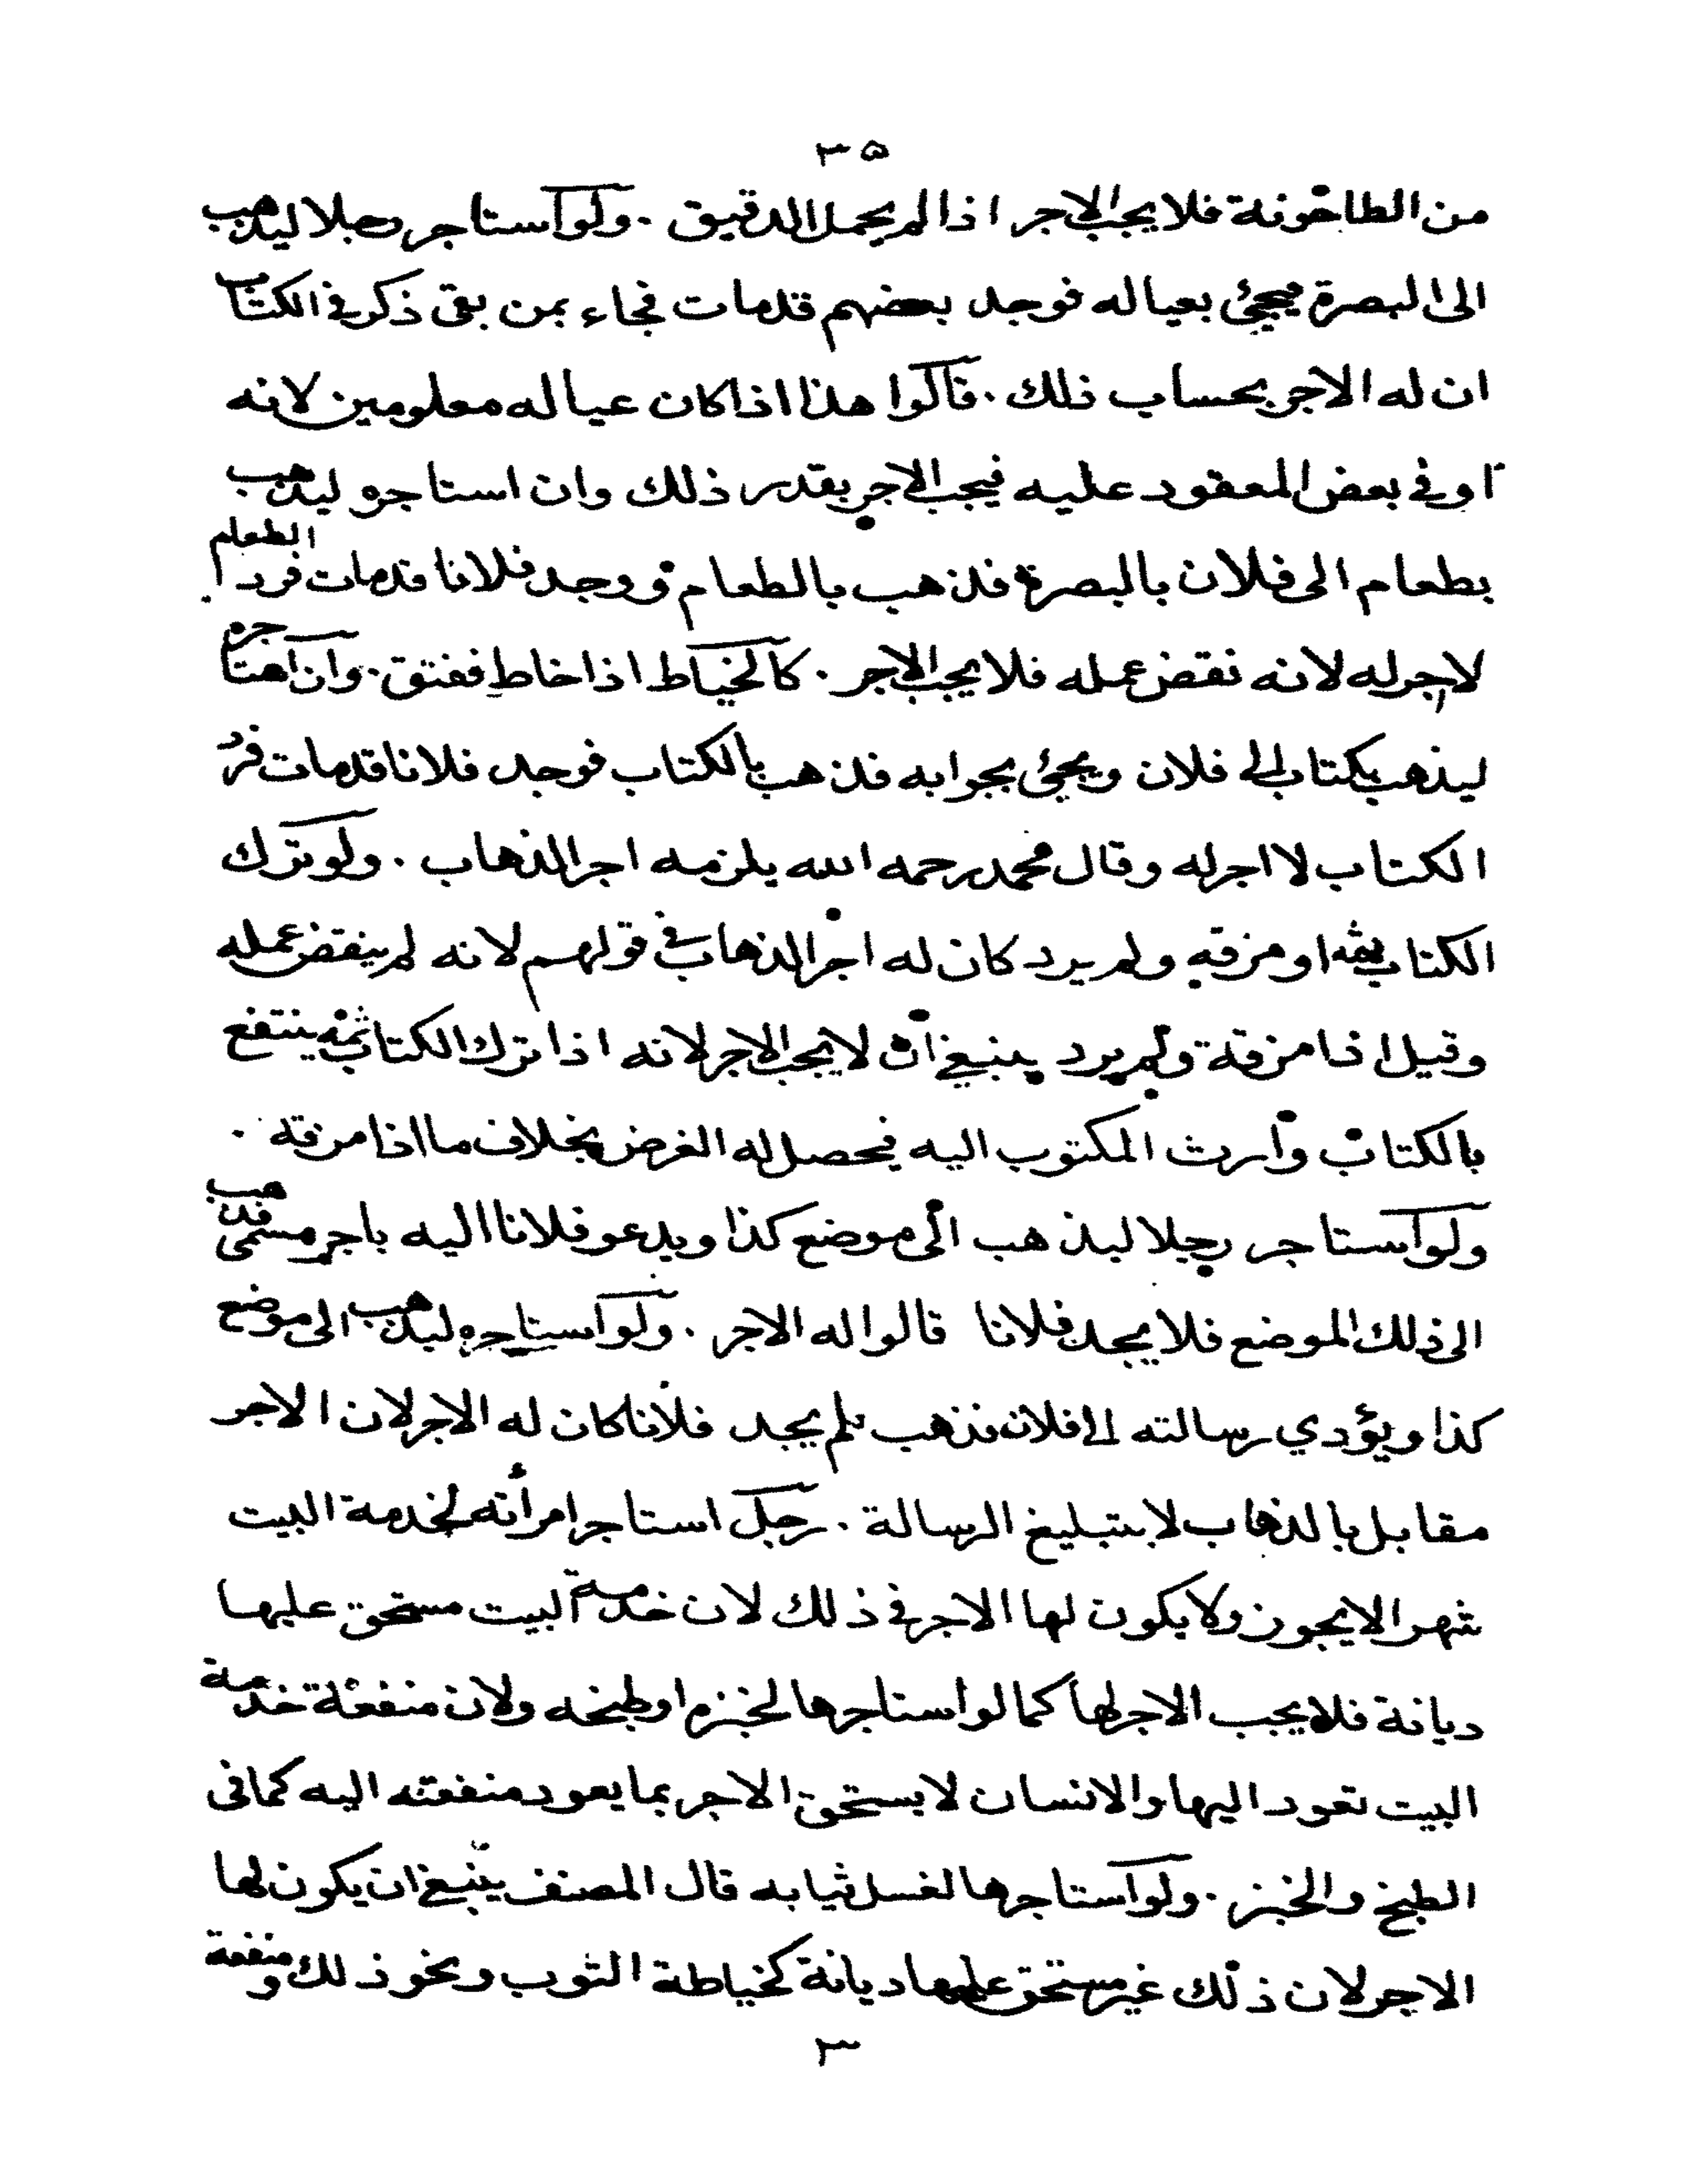 ٣٥
من الطاحونة فلا يجب الاجر اذا لم يحمل الدقيق . ولو استاجر رجلا ليذهب
الى البصرة فيجئ بعياله فوجد بعضهم قدمات فجاء بمن بقى ذكر في الكتاب
ان له الاجر بحساب ذلك . قالوا هذا اذا كان عياله معلومين لانه
اوفى بعض المعقود عليه فيجب الاجر بقدر ذلك وان استاجره ليذهب
بطعام الى فلان بالبصرة فذهب بالطعام فوجد فلانا قدمات فرد الطعام
لا اجر له لانه نقض عمله فلا يجب الاجر . كالخياط اذا خاط ففتق . وان استاجره
ليذهب بكتاب الى فلان ويجئ بجوابه فذهب بالكتاب فوجد فلانا قدمات فرد
الكتاب لا اجر له وقال محمد رحمه الله يلزمه اجر الذهاب . ولو ترك
الكتاب ثمه او مزقه ولم يرد كان له اجر الذهاب في قولهم لانه لم ينقض عمله
وقيل اذا مزقة ولم يرد ينبغي ان لا يجب الاجر لانه اذا ترك الكتاب ثمه ينتفع
بالكتاب وارث المكتوب اليه فيحصل له الغرض بخلاف ما اذا مزقة .
ولو استاجر رجلا ليذهب الى موضع كذا ويدعو فلانا اليه باجر مسمى فذهب
الى ذلك الموضع فلا يجد فلانا قالوا له الاجر . ولو استاجره ليذهب الى موضع
كذا ويؤدي رسالته الى فلان فذهب فلم يجد فلانا كان له الاجر لان الاجر
مقابل بالذهاب لا بتبليغ الرسالة . رجل استاجر امرأته لخدمة البيت
شهرا لا يجوز ولا يكون لها الاجر في ذلك لان خدمة البيت مستحق عليها
ديانة فلا يجب الاجر لها كما لو استاجرها لخبزه او طبخه ولان منفعة خدمة
البيت تعود اليها والانسان لا يستحق الاجر بما يعود منفعته اليه كما فى
الطبخ والخبز . ولو استاجرها لغسل ثيابه قال المصنف ينبغي ان يكون لها
الاجر لان ذلك غير مستحق عليها ديانة كخياطة الثوب ونحو ذلك ومنفعة
٣